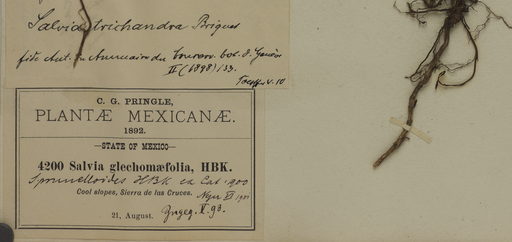 Salvia trichandra Briquet
fide Aut. in Annuaire du Conserv. bot. d. Genève
II (1898) 133.
C. G. PRINGLE,
PLANTÆ MEXICANÆ.
1892.
—STATE OF MEXICO—
4200 Salvia glechomæfolia, HBK.
S. prunelloides HBK
1900
Cool slopes, Sierra de las Cruces.
21, August.